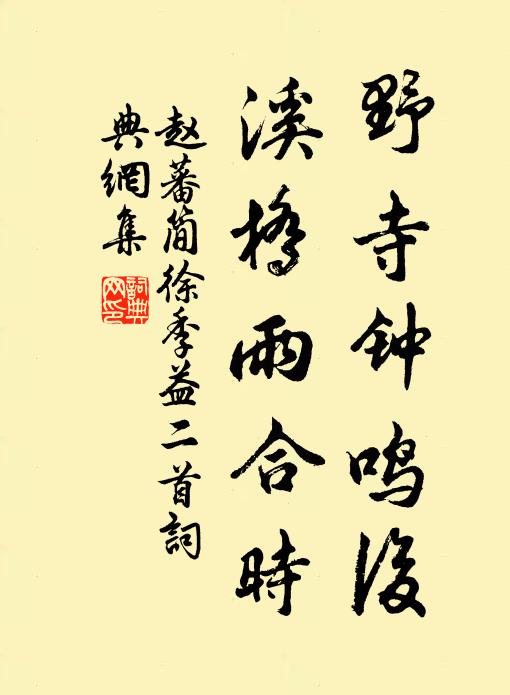 野寺钟鸣后
溪桥雨合時
赵蕃简徐季益二首詞
典網集
詞典
网印